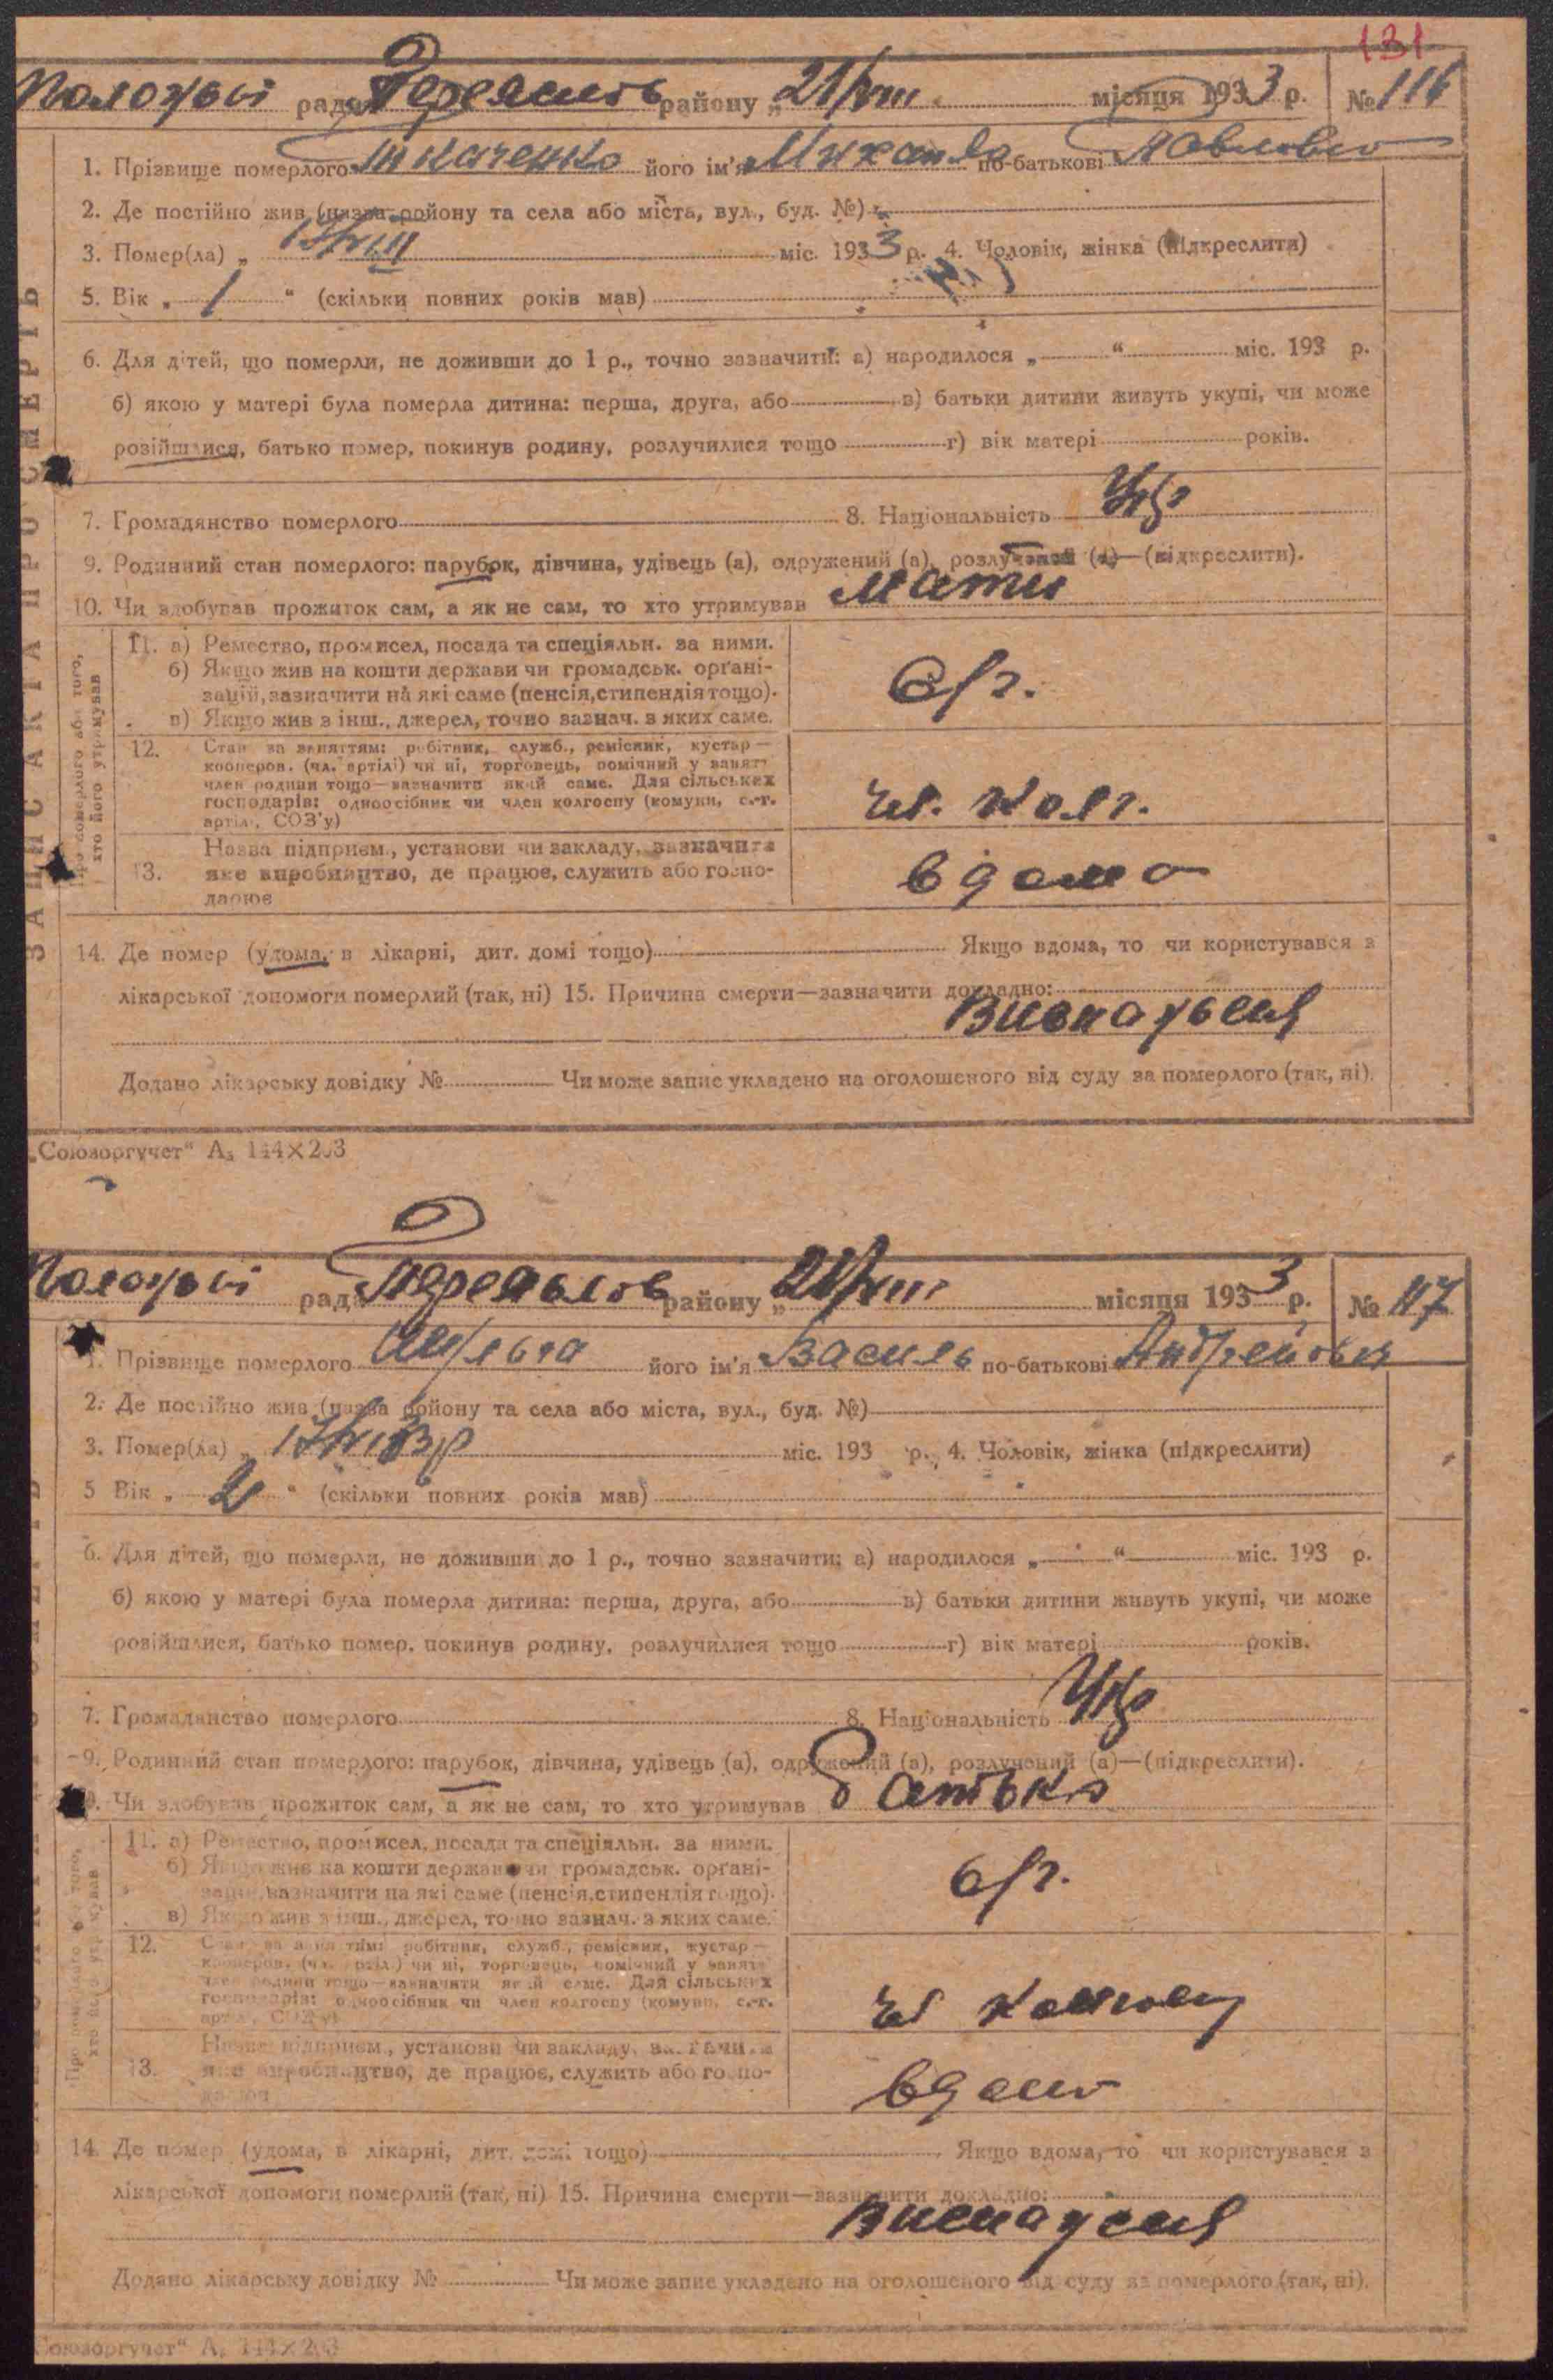 131
рада Переяслів району „ 21/VIII місяця 1933 р. № 116
1. Прізвище померлого Ткаченко його ім'я Михайло по-батькові Павлович
2. Де постійно жив (назва району та села або міста, вул., буд. №)
3. Помер(ла) „ міс. 1933 р. 4. Чоловік, жінка (підкреслити)
5. Вік „ 1 “ (скільки повних років мав)
6. Для дітей, що померли, не доживши до 1 р., точно зазначити: а) народилося „ “ міс. 193 р.
б) якою у матері була померла дитина: перша, друга, або в) батьки дитини живуть укупі, чи може
розійшлися, батько помер, покинув родину, розлучилися тощо г) вік матері років.
7. Громадянство померлого 8. Національність Укр
9. Родинний стан померлого: парубок, дівчина, удівець (а), одружений (а), розлучений (а)—(підкреслити).
10. Чи здобував прожиток сам, а як не сам, то хто утримував мати
ЗАПИС АКТА ПРО СМЕРТЬ
Про померлого або того,
хто його утримував
11. а) Ремество, промисел, посада та спеціяльн. за ними.
б) Якщо жив на кошти держави чи громадськ. орґані-
зацій, зазначити на які саме (пенсія, стипендія тощо).
в) Якщо жив з інш., джерел, точно зазнач. з яких саме.
с/г.
12. Стан за заняттям: робітник, служб., ремісник, кустар—
кооперов. (чл. артілі) чи ні, торговець, помічний у занятт
член родини тощо—зазначити який саме. Для сільських
господарів: одноосібник чи член колгоспу (комуни, с.-г.
артілі, СОЗ'у)
чл. колг.
13. Назва підприєм., установи чи закладу, зазначити
яке виробництво, де працює, служить або госпо-
дарює
вдома
14. Де помер (удома, в лікарні, дит. домі тощо) Якщо вдома, то чи користувався з
лікарської допомоги померлий (так, ні) 15. Причина смерти—зазначити докладно:
Додано лікарську довідку № Чи може запис укладено на оголошеного від суду за померлого (так, ні).
„Союзоргучет“ А₅ 144×203
рада Переяслів району „ 21/VIII місяця 1933 р. № 117
1. Прізвище померлого його ім'я Василь по-батькові Андрейович
2. Де постійно жив (назва району та села або міста, вул., буд. №)
3. Помер(ла) „ міс. 193 р. 4. Чоловік, жінка (підкреслити)
5 Вік „ 2 “ (скільки повних років мав)
6. Для дітей, що померли, не доживши до 1 р., точно зазначити: а) народилося „ “ міс. 193 р.
б) якою у матері була померла дитина: перша, друга, або в) батьки дитини живуть укупі, чи може
розійшлися, батько помер, покинув родину, розлучилися тощо г) вік матері років.
7. Громадянство померлого 8. Національність Укр
9. Родинний стан померлого: парубок, дівчина, удівець (а), одружений (а), розлучений (а)—(підкреслити).
10. Чи здобував прожиток сам, а як не сам, то хто утримував батько
Про померлого або того,
хто його утримував
11. а) Ремество, промисел, посада та спеціяльн. за ними.
б) Якщо жив на кошти держави чи громадськ. орґані-
зацій, зазначити на які саме (пенсія, стипендія тощо).
в) Якщо жив з інш., джерел, точно зазнач. з яких саме.
с/г.
12. Стан за заняттям: робітник, служб., ремісник, кустар—
кооперов. (чл. артілі) чи ні, торговець, помічний у занятт
член родини тощо—зазначити який саме. Для сільських
господарів: одноосібник чи член колгоспу (комуни, с.-г.
артілі, СОЗ'у)
чл колгоспу
13. Назва підприєм., установи чи закладу, зазначити
яке виробництво, де працює, служить або госпо-
дарює
вдома
14. Де помер (удома, в лікарні, дит. домі тощо) Якщо вдома, то чи користувався з
лікарської допомоги померлий (так, ні) 15. Причина смерти—зазначити докладно:
Додано лікарську довідку № Чи може запис укладено на оголошеного від суду за померлого (так, ні).
Союзоргучет“ А₅ 144×203